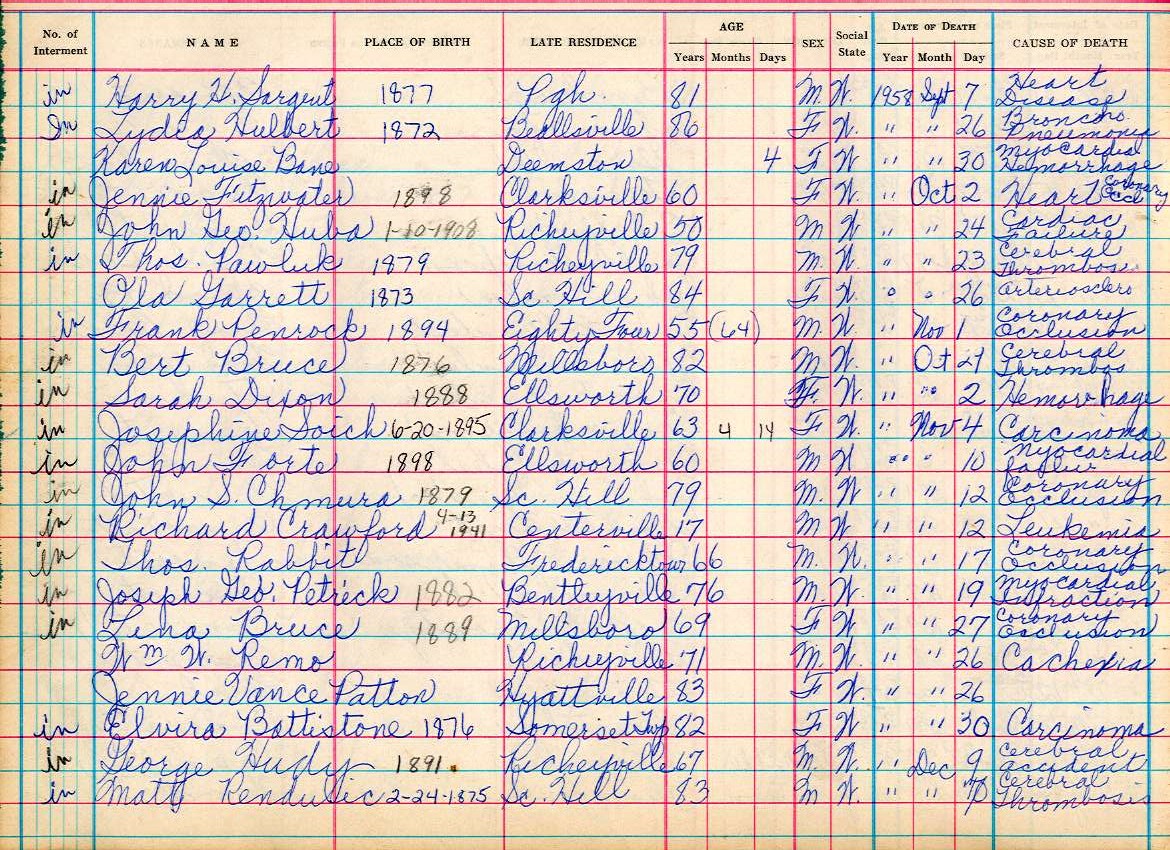 No. of Interment NAME PLACE OF BIRTH LATE RESIDENCE AGE Years Months Days SEX Social State DATE OF DEATH Year Month Day CAUSE OF DEATH
in Harry H. Sargent 1877 Pgh. 81 M. W. 1958 Sept 7 Heart Disease
In Lydia Hulbert 1872 Beallsville 86 F W. " " 26 Broncho. Pneumonia
Karen Louise Bane Deemston 4 F W " " 30 Myocardial Hemorrhage
in Jennie Fitzwater 1898 Clarksville 60 F W. " Oct 2 Heart Coronary Occl
in John Geo. Huba 1-10-1908 Richeyville 50 M W " " 24 Cardiac Failure
in Thos. Pawluk 1879 Richeyville 79 M. W. " " 23 Cerebral Thrombos
Ola Garrett 1873 Sc. Hill 84 F W. " " 26 Arteriosclero
in Frank Penrock 1894 Eighty Four 55 (64) M. W. " Nov 1 Coronary Occlusion
in Bert Bruce 1876 Millsboro 82 M W. " Oct Cerebral Thrombos
in Sarah Dixon 1888 Ellsworth 70 F. W. " " 2 Hemorrhage
in Josephine Soich 6-20-1895 Clarksville 63 4 14 F W. " Nov 4 Carcinoma
in John Forte 1898 Ellsworth 60 M W " " 10 Myocardial
in John S. Chmura 1879 Sc. Hill 79 M. W " " 12 Coronary Occlusion
in Richard Crawford 4-13 1941 Centerville 17 M W " " 12 Leukemia
in Thos. Rabbit Fredericktown 66 M. W. " " 17 Coronary Occlusion
in Joseph Geo. Petrick 1882 Bentleyville 76 M. W. " " 19 Myocardial Infraction
in Lena Bruce 1889 Millsboro 69 F W. " " 27 Coronary Occlusion
Wm W. Remo Richeyville 71 M. W. " " 26 Cachexia
Jennie Vance Patton Hyattville 83 F W. " " 26
in Elvira Battistone 1876 Somerset Twp 82 F W " " 30 Carcinoma
in George Hudy 1891. Richeyville 67 M. W. " Dec 9 Cerebral accident
in Maty 2-24-1875 Sc. Hill 83 M W. " " Cerebral Thrombosis